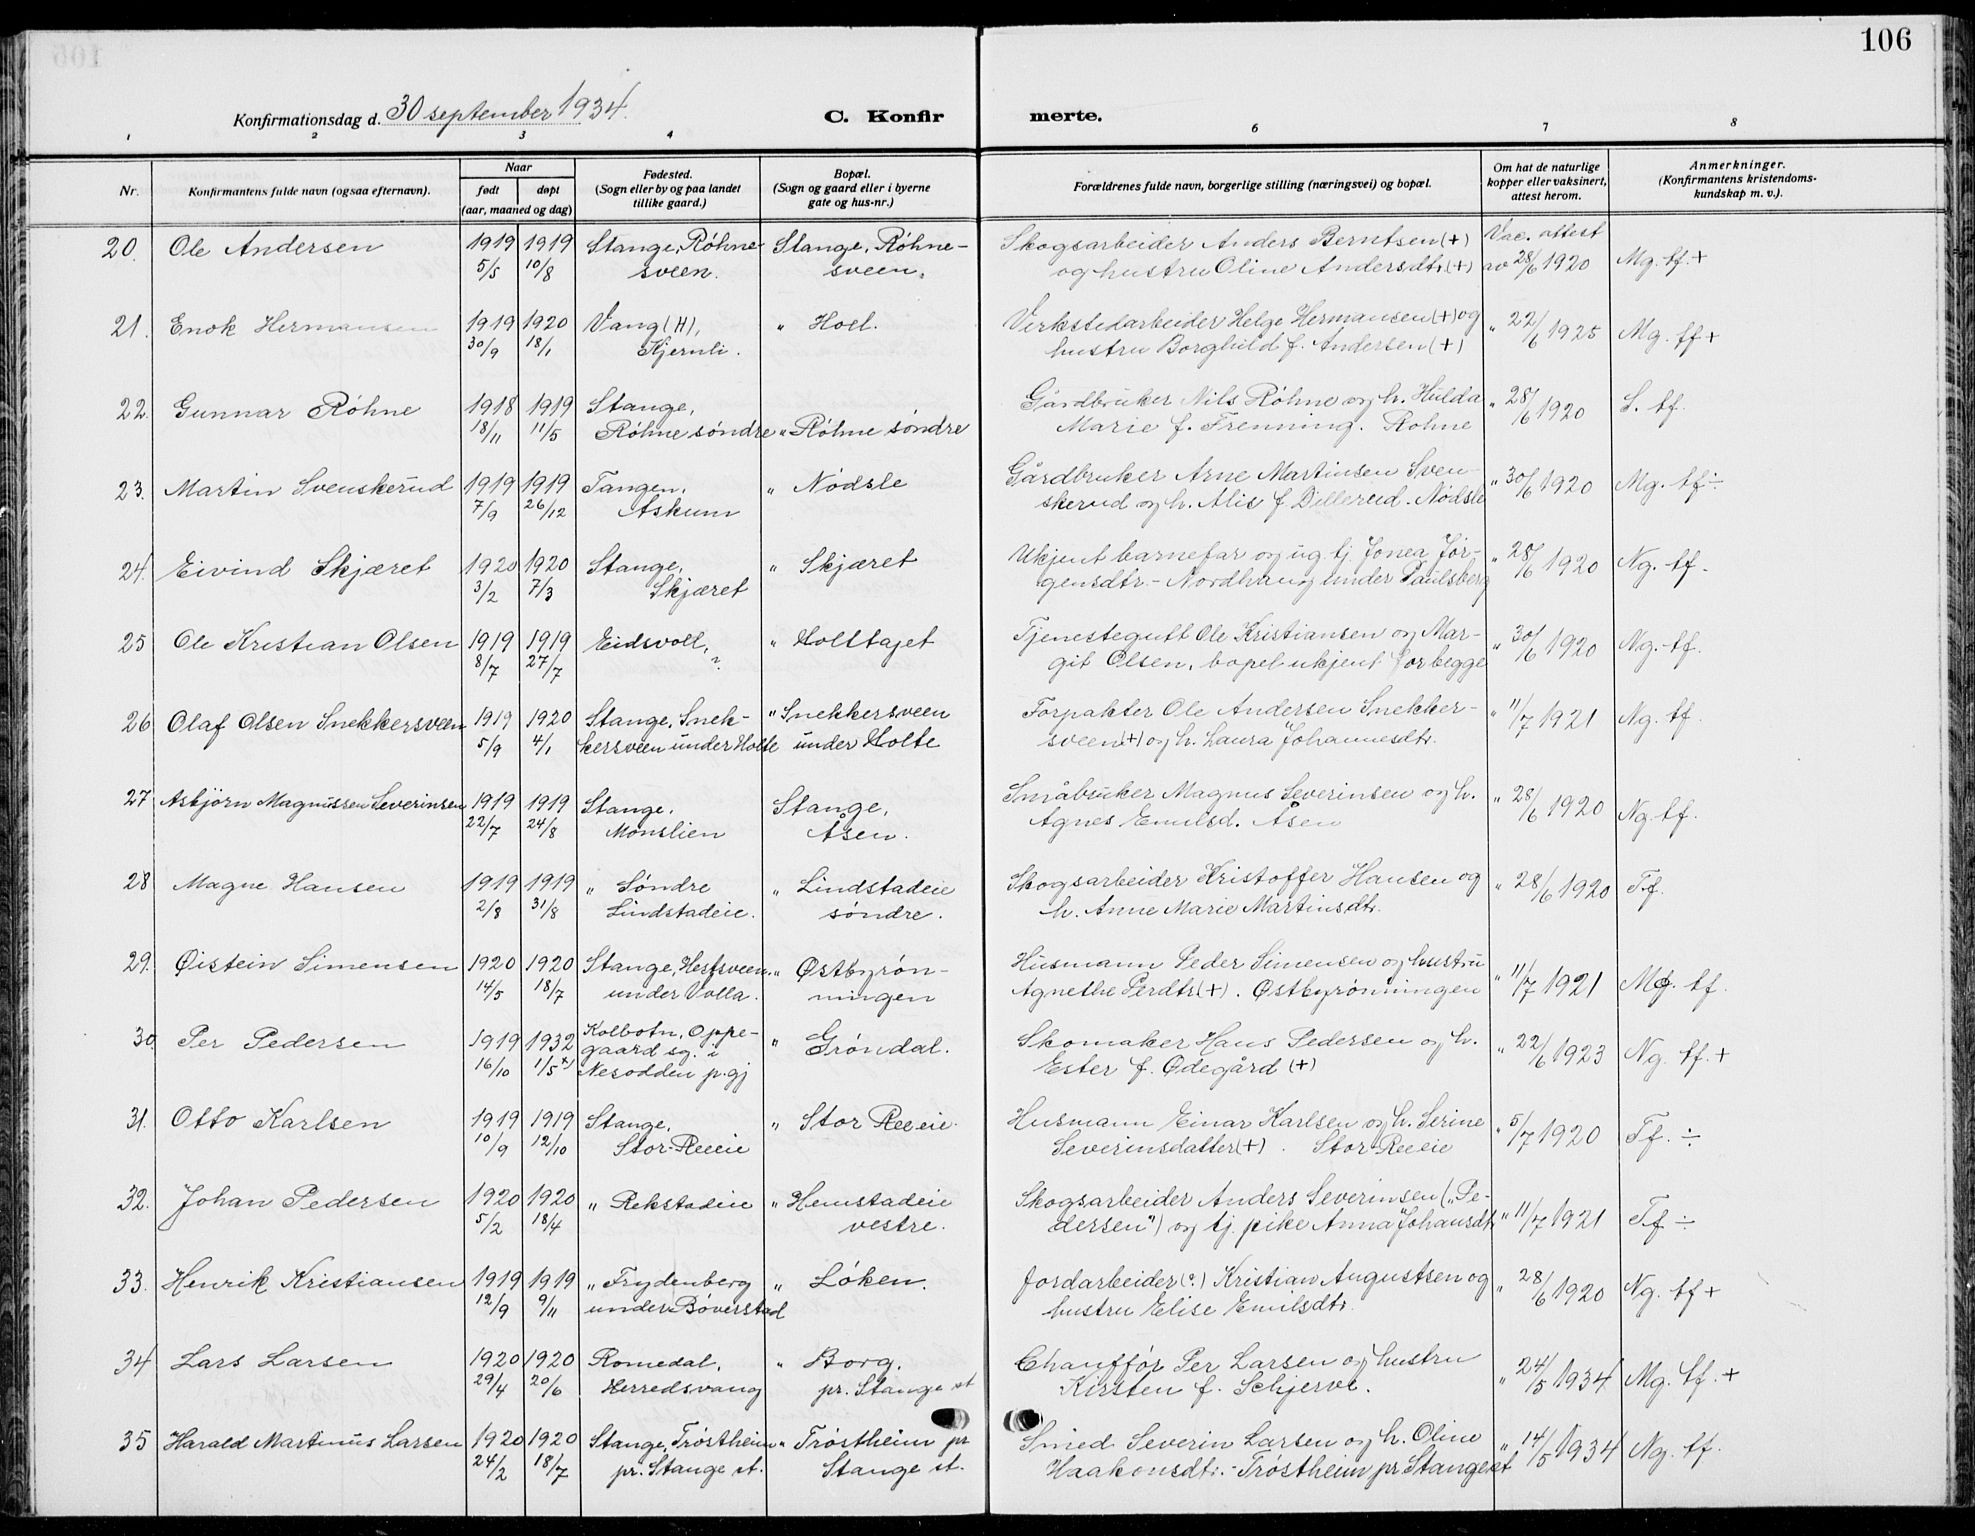 106
Konfirmationsdag d. 30 september 1934. C. Konfirmerte.
1 2 3 4 6 7 8
Nr. Konfirmantens fulde navn (ogsaa efternavn). Naar født døpt (aar, maaned og dag) Fødested. (Sogn eller by og paa landet tillike gaard.) Bopæl. (Sogn og gaard eller i byerne gate og hus-nr.) Forældrenes fulde navn, borgerlige stilling (næringsvei) og bopæl. Om hat de naturlige kopper eller vaksinert, attest herom. Anmerkninger. (Konfirmantens kristendoms-kundskap m. v.).
20. Ole Andersen 1919 1919 Stange, Røhne- Stange, Røhne- Skogsarbeider Anders Berntsen (+) Vac. attest
5/5 10/8 sveen. sveen. og hustru Oline Andersdtr. (+) av 28/6 1920 Mg. tf. +
21. Enok Hermansen 1919 1920 Vang (H), " Hoel. Verkstedarbeider Helge Hermansen (+) og " 22/6 1925 Mg. tf +
30/9 18/1 Kjernli. hustru Borghild f. Andersen (+)
22. Gunnar Røhne 1918 1919 Stange, Gårdbruker Nils Røhne og h. Hulda " 28/6 1920 S. tf.
18/11 11/5 Røhne søndre " Røhne søndre Marie f. Frenning. Røhne
23. Martin Svenskerud 1919 1919 Tangen, " Nødsle Gårdbruker Arne Martinsen Sven- " 30/6 1920 Mg. tf ÷
7/9 26/12 Askum skerud og h. Alis f Dillerud. Nødsle
24. Eivind Skjæret 1920 1920 Stange, " Skjæret Ukjent barnefar og ug. tj. Jonea Jør- " 28/6 1920 Ng. tf.
3/2 7/3 Skjæret gensdtr. - Nordhaug under Paulsberg
25 Ole Kristian Olsen 1919 1919 Eidsvoll, " Holttajet Tjenestegutt Ole Kristiansen og Mar- " 30/6 1920 Ng. tf.
8/7 27/7 ? git Olsen, bopel ukjent for begge
26 Olaf Olsen Snekkersveen 1919 1920 Stange, Snek- " Snekkersveen Forpakter Ole Andersen Snekker- " 11/7 1921 Ng. tf.
5/9 4/1 kersveen under Holte under Holte sveen (+) og h. Laura Johannesdtr.
27 Asbjørn Magnussen Severinsen 1919 1919 Stange, Stange, Småbruker Magnus Severinsen og h. " 28/6 1920 Ng. tf.
22/7 24/8 Monslien Åsen. Agnes Emilsd. Åsen
28 Magne Hansen 1919 1919 " Søndre " Lindstadeie Skogsarbeider Kristoffer Hansen og " 28/6 1920 Tf.
2/8 31/8 Lindstadeie. søndre. h. Anne Marie Martinsdtr.
29. Øistein Simensen 1920 1920 Stange, Hestsveen " Østbyrøn- Husmann Peder Simensen og hustru " 11/7 1921 Mg. tf.
14/5 18/7 under Volla. ningen Agnethe Perdtr (+). Østbyrønningen
30. Per Pedersen 1919 1932 Kolbotn, Oppe- " Grøndal. Skomaker Hans Pedersen og h. " 22/6 1923 Ng. tf. +
16/10 1/5 x) gaard sg. i Nesodden p.gj Ester f. Ødegård (+)
31. Otto Karlsen 1919 1919 Stange, " Stor Reeie. Husmann Einar Karlsen og h. Serine " 5/7 1920 Tf. ÷
10/9 12/10 Stor-Reeie Severinsdatter (+). Stor-Reeie
32. Johan Pedersen 1920 1920 " Rekstadeie " Hemstadeie Skogsarbeider Anders Severinsen („Pe- " 11/7 1921 Tf ÷
5/2 18/4 vestre. dersen") og tj. pike Anna Johansdtr
33. Henrik Kristiansen 1919 1919 " Frydenberg " Løken. Jordarbeider (?) Kristian Augustsen og " 28/6 1920 Ng. tf +
12/9 9/11 under Bøverstad hustru Elise Emilsdtr.
34 Lars Larsen 1920 1920 Romedal, " Borg, Chauffør Per Larsen og hustru " 24/5 1934 Mg. tf. +
29/4 20/6 Herredsvang pr. Stange st Kirsten f. Schjerve.
35 Harald Martinus Larsen 1920 1920 Stange, Trøstheim " Trøstheim pr Smed Severin Larsen og h. Oline " 14/5 1934 Ng. tf.
24/2 18/7 pr. Stange st. Stange st. Haakonsdtr. - Trøstheim pr Stange st